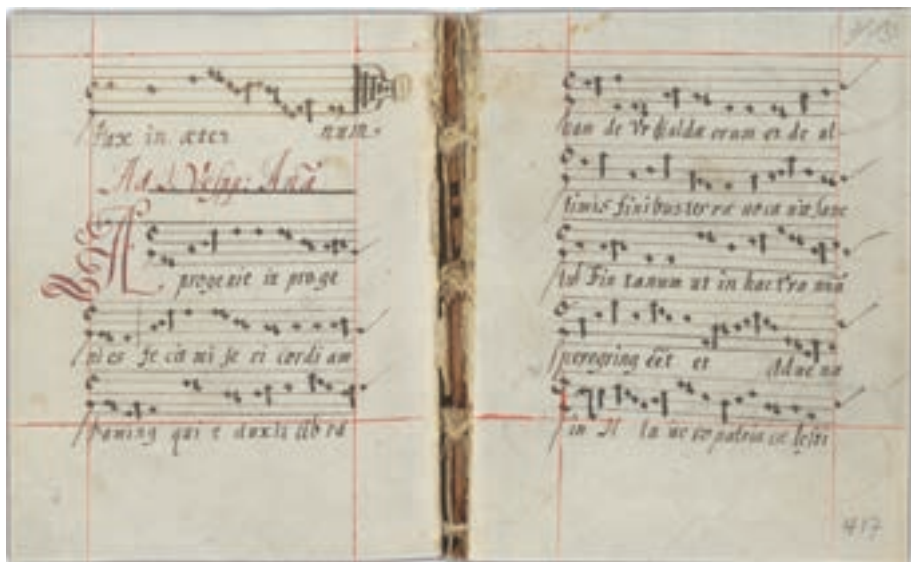 pax in æter num.
Ad Vesp: Anã
A progenie in proge
ni es fe cit mi se ri cordi am
qui e duxit Ab ra
ham de Vr Caldæ orum et de ul
timis finibus terræ uoca uit sanc
tũ Fin tanum ut in hac
peregrinꝰ eēt et Aduena
in patria cæ lesti
417